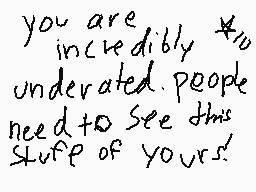 you are
incredibly ★10
underated. people
need to see this
stuff of yours!